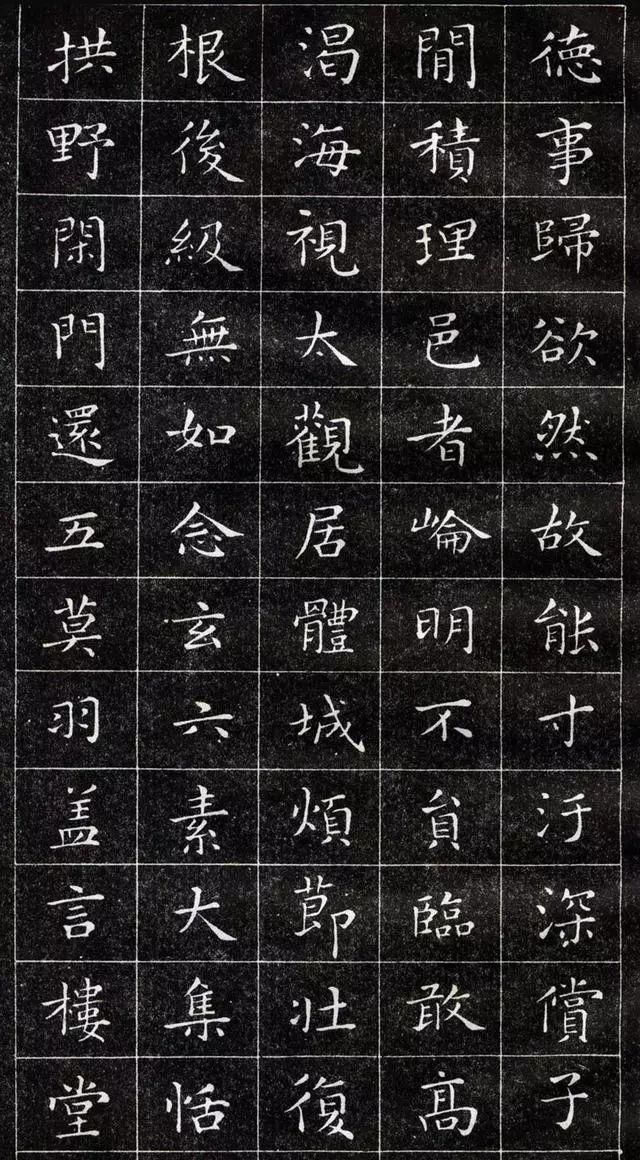 徳事歸欲然故能寸汙深償子
閒積理邑者崘明不貟臨敢髙
渇海視太觀居體城煩莭壯復
根後級無如念玄六素大集恬
拱野閑門還五莫羽盖言樓堂